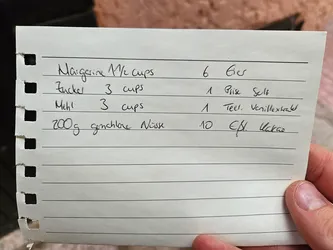 Margarine 1 1/2 cups 6 Eier
Zucker 3 cups 1 Prise Salz
Mehl 3 cups 1 Teel. Vanilleextrakt
200g gemahlene Nüsse 10 Eßl Kakao